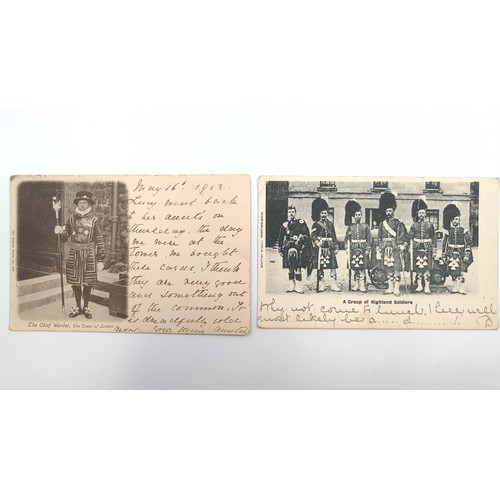 May 16th. 1903.
Lucy went back
to her on
thursday. the day
we were at the
Tower. we bought
these cards. I think
they are being good
and something out
of the common. It
is dreadfully cold
The Chief Warder, The Tower of London
A Group of Highland Soldiers
Why not come to lunch. There will
most likely be a d